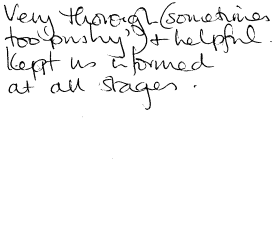 Very thorough (sometimes
too 'pushy') + helpful.
Kept us informed
at all stages.